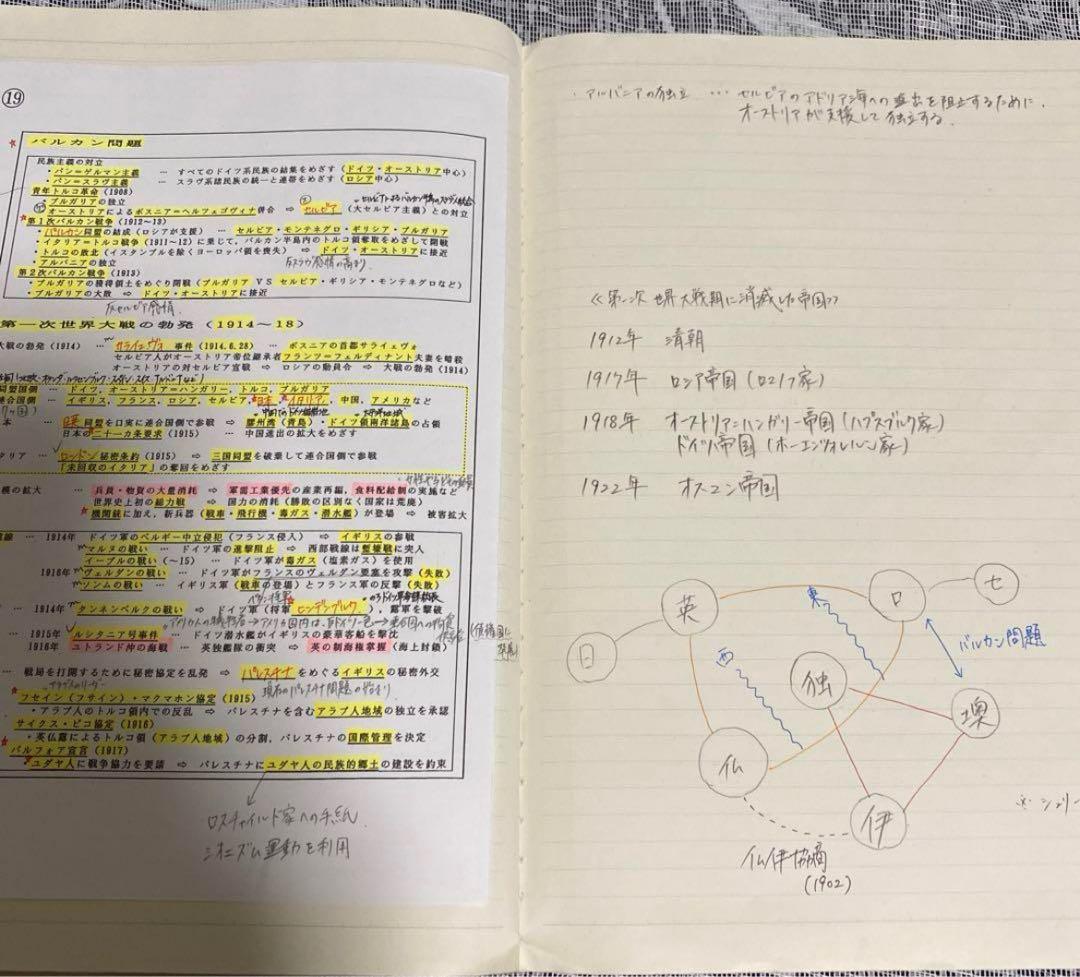 ⑲
バルカン問題
民族主義の対立
・パン=ゲルマン主義 … すべてのドイツ系民族の結集をめざす(ドイツ・オーストリア中心)
・パン=スラヴ主義 … スラヴ系諸民族の統一と連帯をめざす(ロシア中心)
青年トルコ革命(1908)
・ブルガリアの独立
・オーストリアによるボスニア=ヘルツェゴヴィナ併合 ⇨ セルビア(大セルビア主義)との対立
第1次バルカン戦争(1912~13)
・バルカン同盟の結成(ロシアが支援) … セルビア・モンテネグロ・ギリシア・ブルガリア
・イタリア=トルコ戦争(1911~12)に乗じて,バルカン半島内のトルコ領奪取をめざして開戦
・トルコの敗北(イスタンブルを除くヨーロッパ領を喪失) ⇨ ドイツ・オーストリアに接近
・アルバニアの独立
反スラヴ感情の高まり
第2次バルカン戦争(1913)
・ブルガリアの獲得領土をめぐり開戦(ブルガリア VS セルビア・ギリシア・モンテネグロなど)
・ブルガリアの大敗 ⇨ ドイツ・オーストリアに接近
反セルビア感情
第一次世界大戦の勃発(1914~18)
大戦の勃発(1914) … サライェヴォ事件(1914.6.28) … ボスニアの首都サライェヴォ
セルビア人がオーストリア帝位継承者フランツ=フェルディナント夫妻を暗殺
オーストリアの対セルビア宣戦 ⇨ ロシアの動員令 ⇨ 大戦の勃発(1914)
同盟国側 … ドイツ,オーストリア=ハンガリー,トルコ,ブルガリア
連合国側 … イギリス,フランス,ロシア,セルビア,日本,イタリア,中国,アメリカなど
本 … 日英同盟を口実に連合国側で参戦 ⇨ 膠州湾(青島)・ドイツ領南洋諸島の占領
日本の二十一カ条要求(1915) … 中国進出の拡大をめざす
タリア … ロンドン秘密条約(1915) ⇨ 三国同盟を破棄して連合国側で参戦
「未回収のイタリア」の奪回をめざす
模の拡大 … 兵員・物資の大量消耗 ⇨ 軍需工業優先の産業再編,食料配給制の実施など
世界史上初の総力戦 ⇨ 国力の消耗(勝敗の区別なく国家は荒廃)
機関銃に加え,新兵器(戦車・飛行機・毒ガス・潜水艦)が登場 ⇨ 被害拡大
戦線 … 1914年 ドイツ軍のベルギー中立侵犯(フランス侵入) ⇨ イギリスの参戦
マルヌの戦い … ドイツ軍の進撃阻止 ⇨ 西部戦線は塹壕戦に突入
イープルの戦い(~15) … ドイツ軍が毒ガス(塩素ガス)を使用
1916年 ヴェルダンの戦い … ドイツ軍がフランスのヴェルダン要塞を攻撃(失敗)
ソンムの戦い … イギリス軍(戦車の登場)とフランス軍の反撃(失敗)
… 1914年 タンネンベルクの戦い … ドイツ軍(将軍ヒンデンブルク),露軍を撃破
… 1915年 ルシタニア号事件 … ドイツ潜水艦がイギリスの豪華客船を撃沈
1916年 ユトランド沖の海戦 … 英独艦隊の衝突 ⇨ 英の制海権掌握(海上封鎖)
… 戦局を打開するために秘密協定を乱発 ⇨ パレスチナをめぐるイギリスの秘密外交
現在のパレスチナ問題の始まり
フセイン(フサイン)・マクマホン協定(1915)
・アラブ人のトルコ領内での反乱 ⇨ パレスチナを含むアラブ人地域の独立を承認
サイクス・ピコ協定(1916)
・英仏露によるトルコ領(アラブ人地域)の分割,パレスチナの国際管理を決定
バルフォア宣言(1917)
・ユダヤ人に戦争協力を要請 ⇨ パレスチナにユダヤ人の民族的郷土の建設を約束
ロスチャイルド家への手紙
シオニズム運動を利用
・アルバニアの独立 … セルビアのアドリア海への進出を阻止するために,
オーストリアが支援して独立する。
≪第一次世界大戦期に消滅した帝国≫
1912年 清朝
1917年 ロシア帝国(ロマノフ家)
1918年 オーストリア=ハンガリー帝国(ハプスブルク家)
ドイツ帝国(ホーエンツォレルン家)
1922年 オスマン帝国
英
ロ
セ
東
日
西
独
バルカン問題
墺
仏
伊
仏伊協商
(1902)